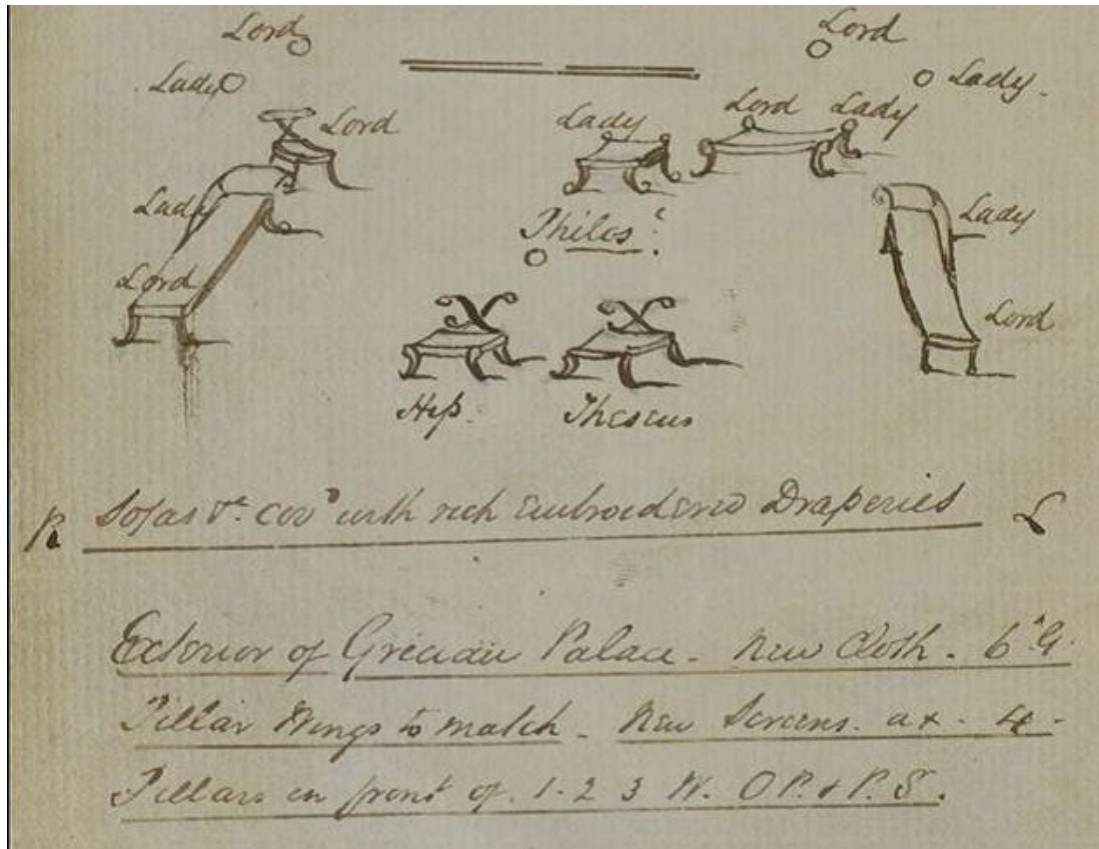 Lord Lord
Lady Lady.
Lord Lady Lord Lady
Philos:
Lady Lady
Lord Lord
Hip. Theseus
R Sofas &c. covd with rich Embroidered Draperies L
Exterior of Grecian Palace - New Cloth. 6th G.
Pillar Wings to match - New Screens. at. 4 -
Pillars in front of. 1-2 3 W. O.P. & P.S.